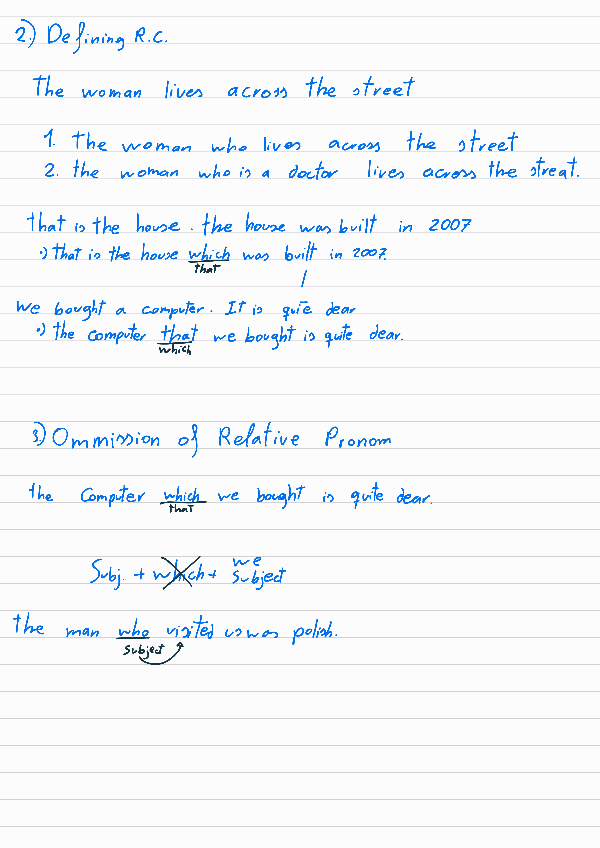 2.) Defining R.C.
The woman lives across the street
1. The woman who lives across the street
2. the woman who is a doctor lives across the streat.
that is the house. the house was built in 2007
•) that is the house which was built in 2007.
that
we bought a computer. It is quite dear
•) the computer that we bought is quite dear.
which
3.) Ommission of Relative Pronom
the Computer which we bought is quite dear.
that
we
Subj. + which + Subject
The man who visited us was polish.
subject